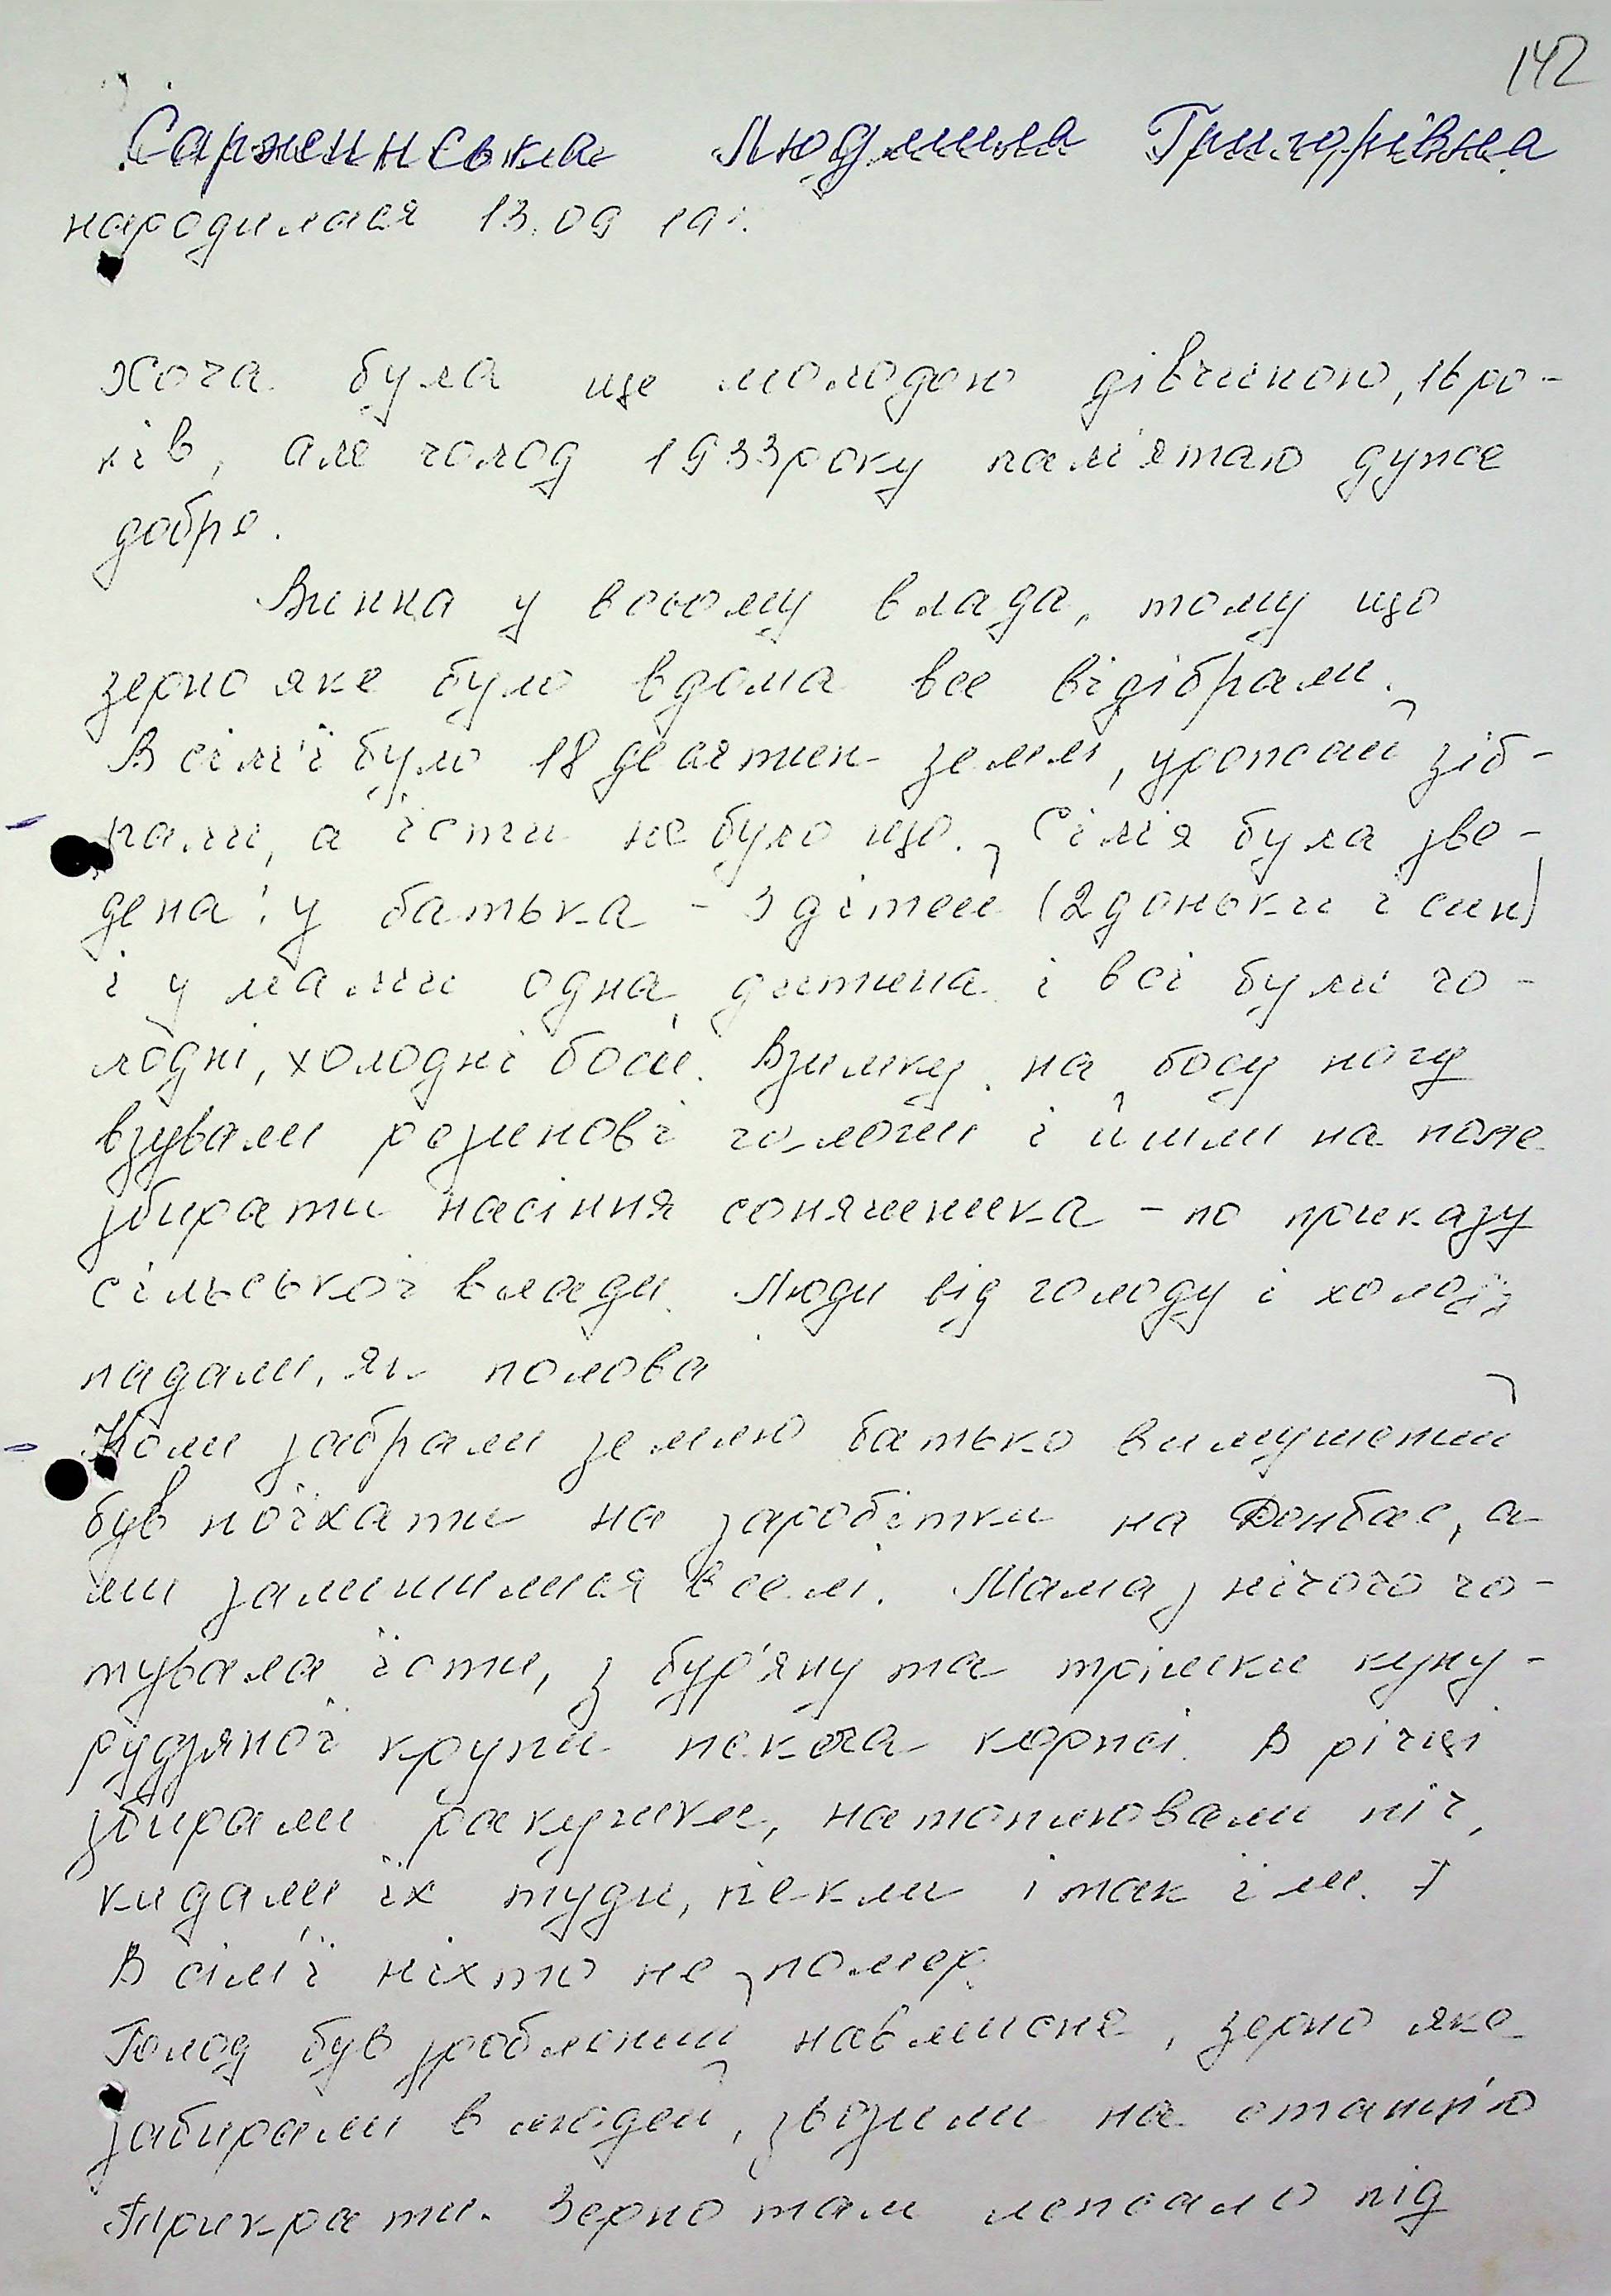 142
Сарженнська Людмила Григорівна
народилася 13.09 19
Хоча була ще молодою дівчиною, 16 ро-
ків, але голод 1933 року пам'ятаю дуже
добре.
Винна у всьому влада, тому що
зерно яке було вдома все відібрали.
В сім'ї було 18 десятин землі, урожай зіб-
рали, а їсти не було що. Сім'я була зве-
дена: у батька - 3 дітей (2 доньки і син)
і у мами одна дитина і всі були го-
лодні, холодні босі. Взимку на босу ногу
взували резинові голоші і йшли на поле
збирати насіння соняшника - по приказу
сільської влади. Люди від голоду і холоду
падали, як полова
Коли забрали землю батько вимушений
був поїхати на заробітки на Донбас, а
ми залишилися в селі. Мама з нічого го-
тувала їсти, з бур'яну та трішки куку-
рудзяної крупи пекла коржі. В річці
збирали ракушки, натоплювали піч,
кидали їх туди, пекли і так їли.
В сім'ї ніхто не помер.
Голод був зроблений навмисне, зерно яке
забирали в людей, звозили на станцію
Зерно там лежало під